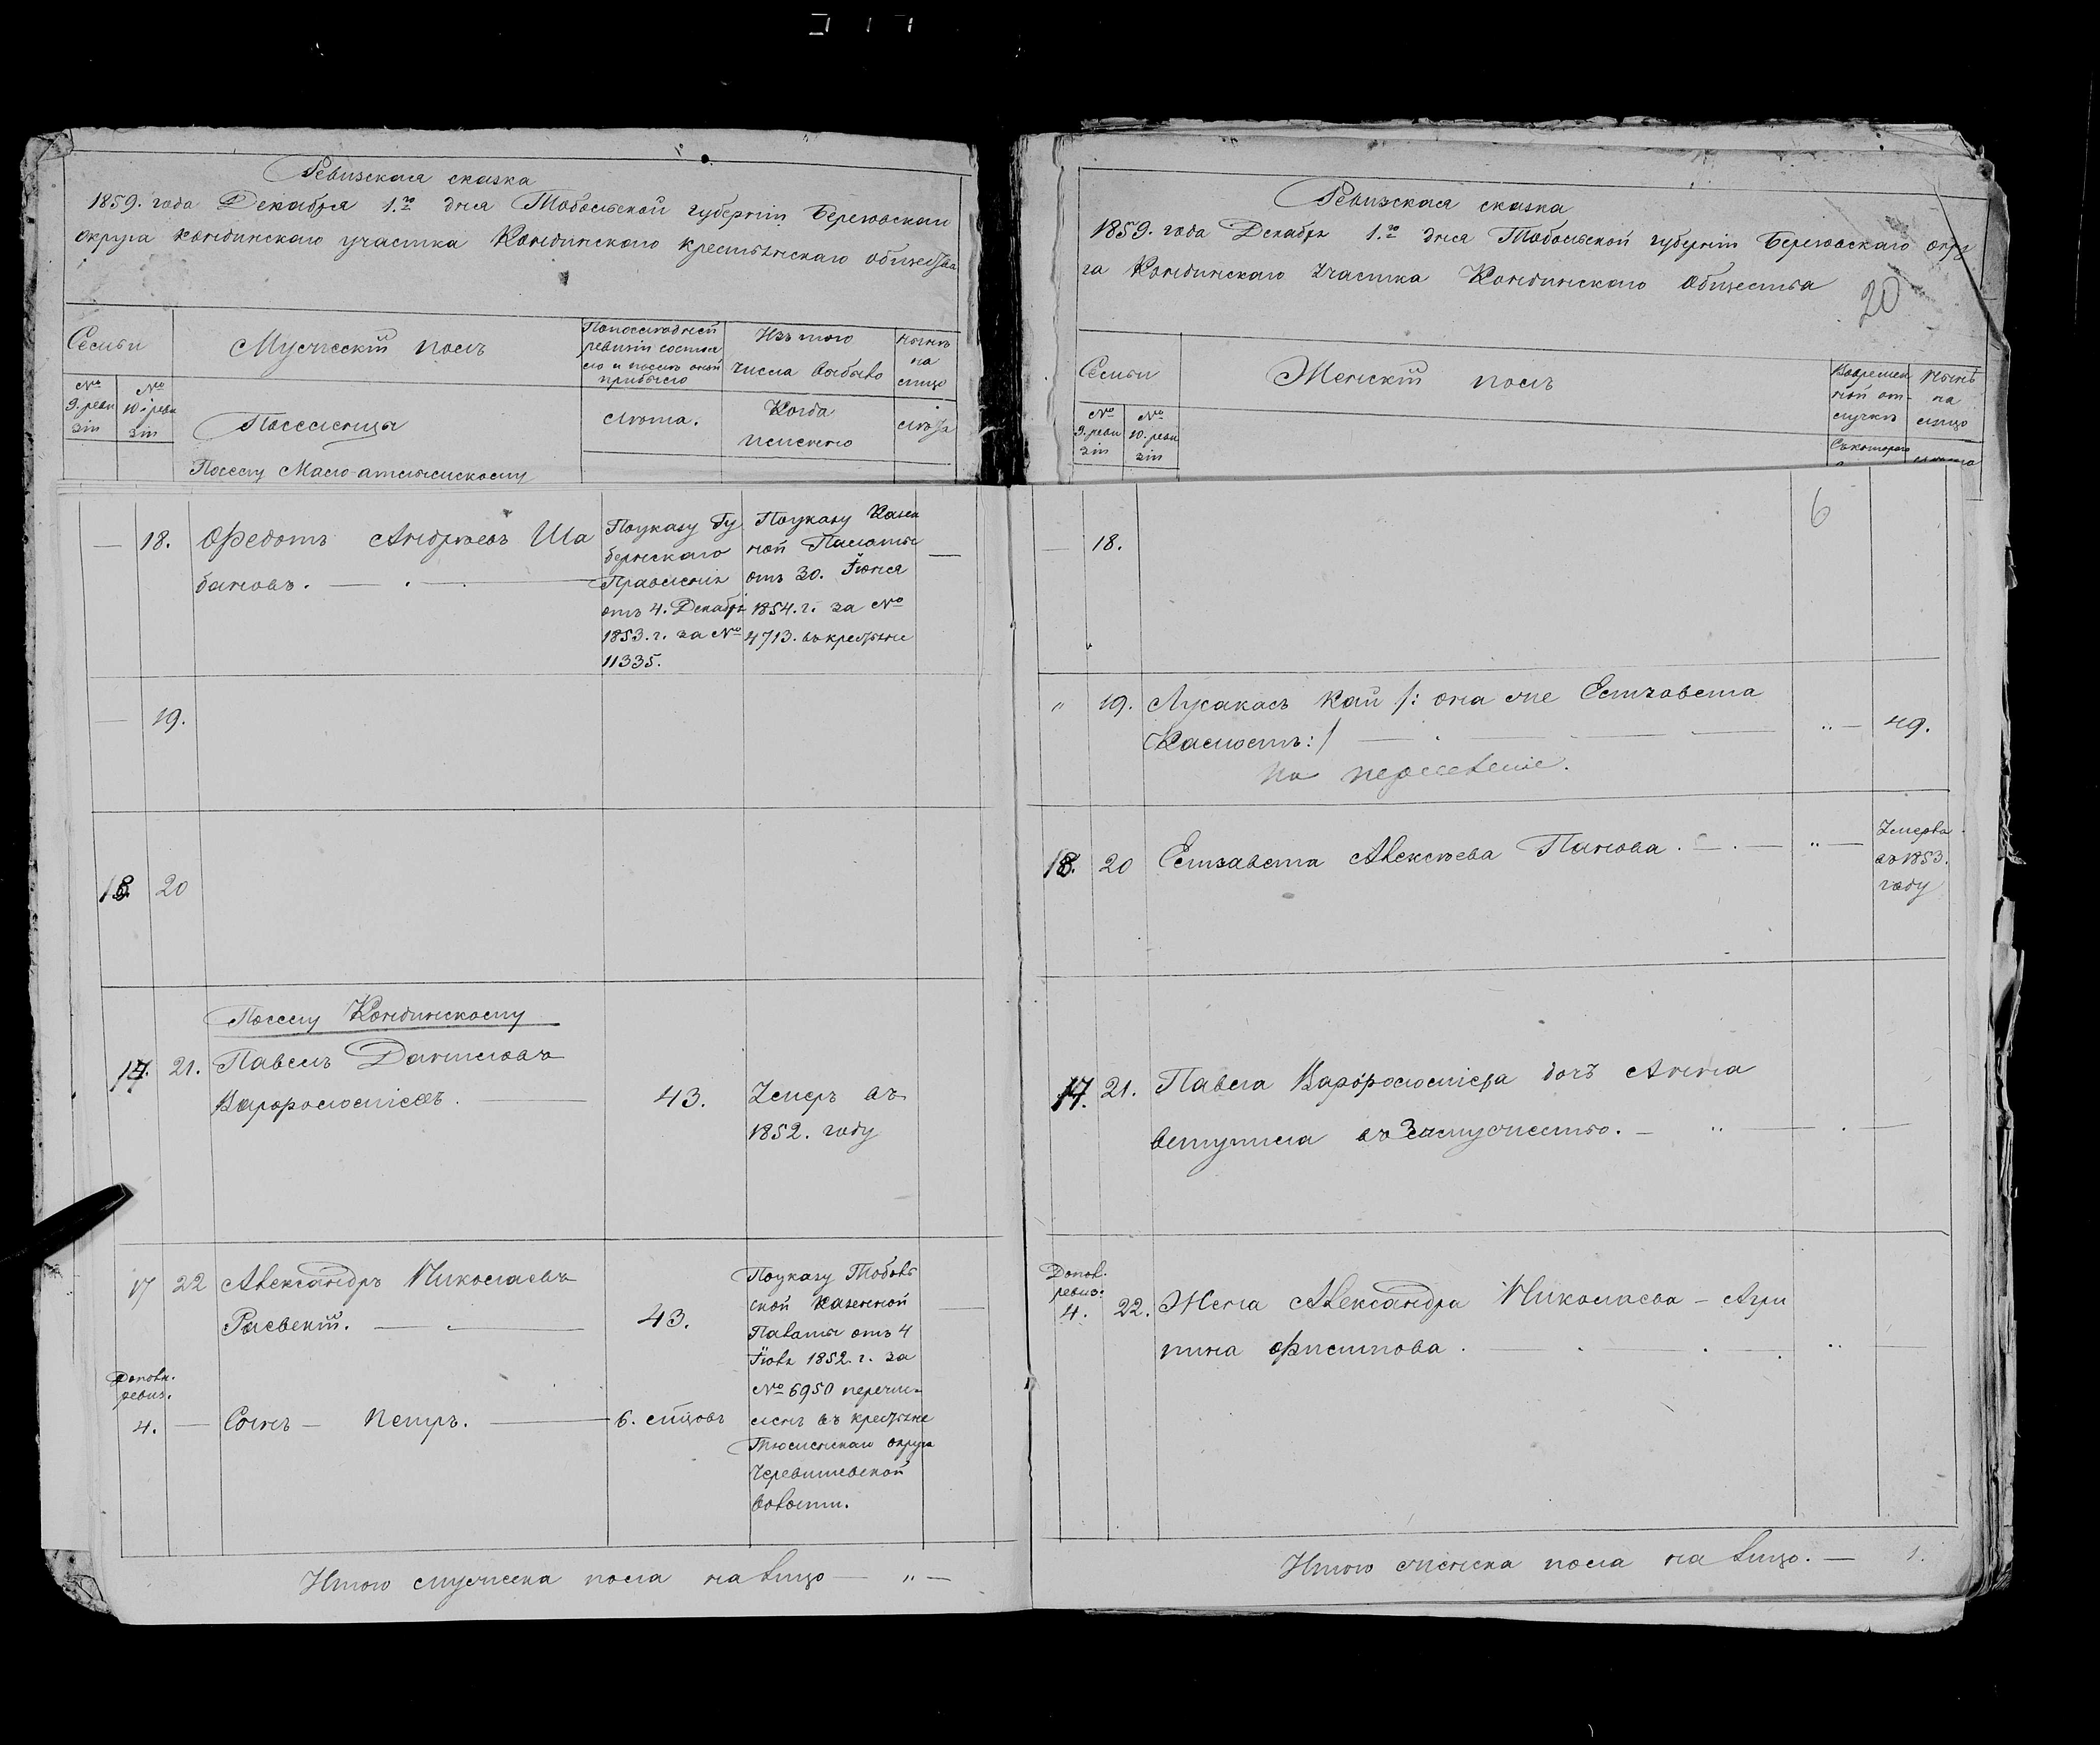 Ревизская сказка
1859. года Декабря 1.го дня Тобольской губернiи Березовскаго
округа Кондинскаго участка Кондинскаго крестьянскаго общества
Семьи
Мужескiй полъ
По последней
ревизiи состоя
ло и после оной
прибыло
Изъ того
числа выбыло
ныне
на
лицо
№
9. реви
зiи
№
10. реви
зiи
Поселенцы
лета.
Когда
именно
лета
Поселу Мало-атлымскому
— 18. Федотъ Андреевъ Ша
бановъ. —
По указу Гу
бернскаго
Правленiя
отъ 4. Декабря
1853. г. за №
11335.
По указу Казен
ной Палаты
отъ 30. Iюня
1854. г. за №
4713. въ крестьяне
—
— 19.
18. 20
Поселу Кондинскому
17. 21. Павелъ Даниловъ
43.
Умеръ въ
1852. году
17 22 Александръ Николаевъ
Раевскiй. —
43.
По указу Тоболь
ской Казенной
Палаты отъ 4
1852. г. за
№ 6950 перечи-
сленъ въ крестьяне
Тюменскаго округа
Черевишевской
волости.
—
Дополн.
ревиз.
4. — Сынъ — Петръ. — 6. месяцовъ
Итого мужеска пола на лицо — „ —
Ревизская сказка
1859. года Декабря 1.го дня Тобольской губернiи Березовскаго окру
га Кондинскаго участка Кондинскаго Общества
20
Семьи
Женскiй полъ
Во времен
ной от-
лучке
Ныне
на
лицо
№
9. реви
зiи
№
10. реви
зiи
Съ котораго
лета
6
— 18.
„ 19. Лукакасъ Кай /: она же Елизавета
:/ — „ — 49.
на
18. 20 Елизавета Алексеева Панова. — „ —
Умерла
въ 1853.
году
17. 21. Павла дочь Анна
вступила въ замужество. — „ —
Допол.
ревиз.
4. 22. Жена Александра Николаева — Агри
пина Филипова. — „ —
Итого женска пола на лицо. — 1.